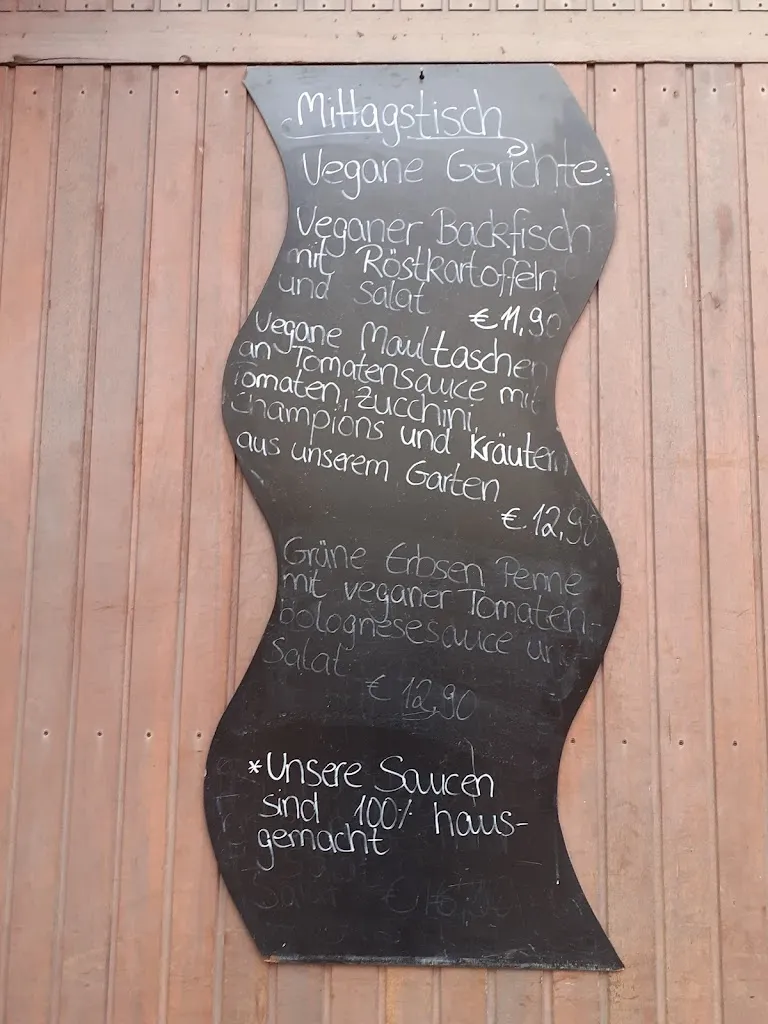 Mittagstisch
Vegane Gerichte:
Veganer Backfisch
mit Röstkartoffeln
und Salat
€ 11,90
Vegane Maultaschen
an Tomatensauce mit
Tomaten, Zucchini,
Champions und Kräutern
aus unserem Garten
€ 12,90
Grüne Erbsen Penne
mit veganer Tomaten-
bolognesesauce und
Salat
€ 12,90
*Unsere Saucen
sind 100% haus-
gemacht
Salat €